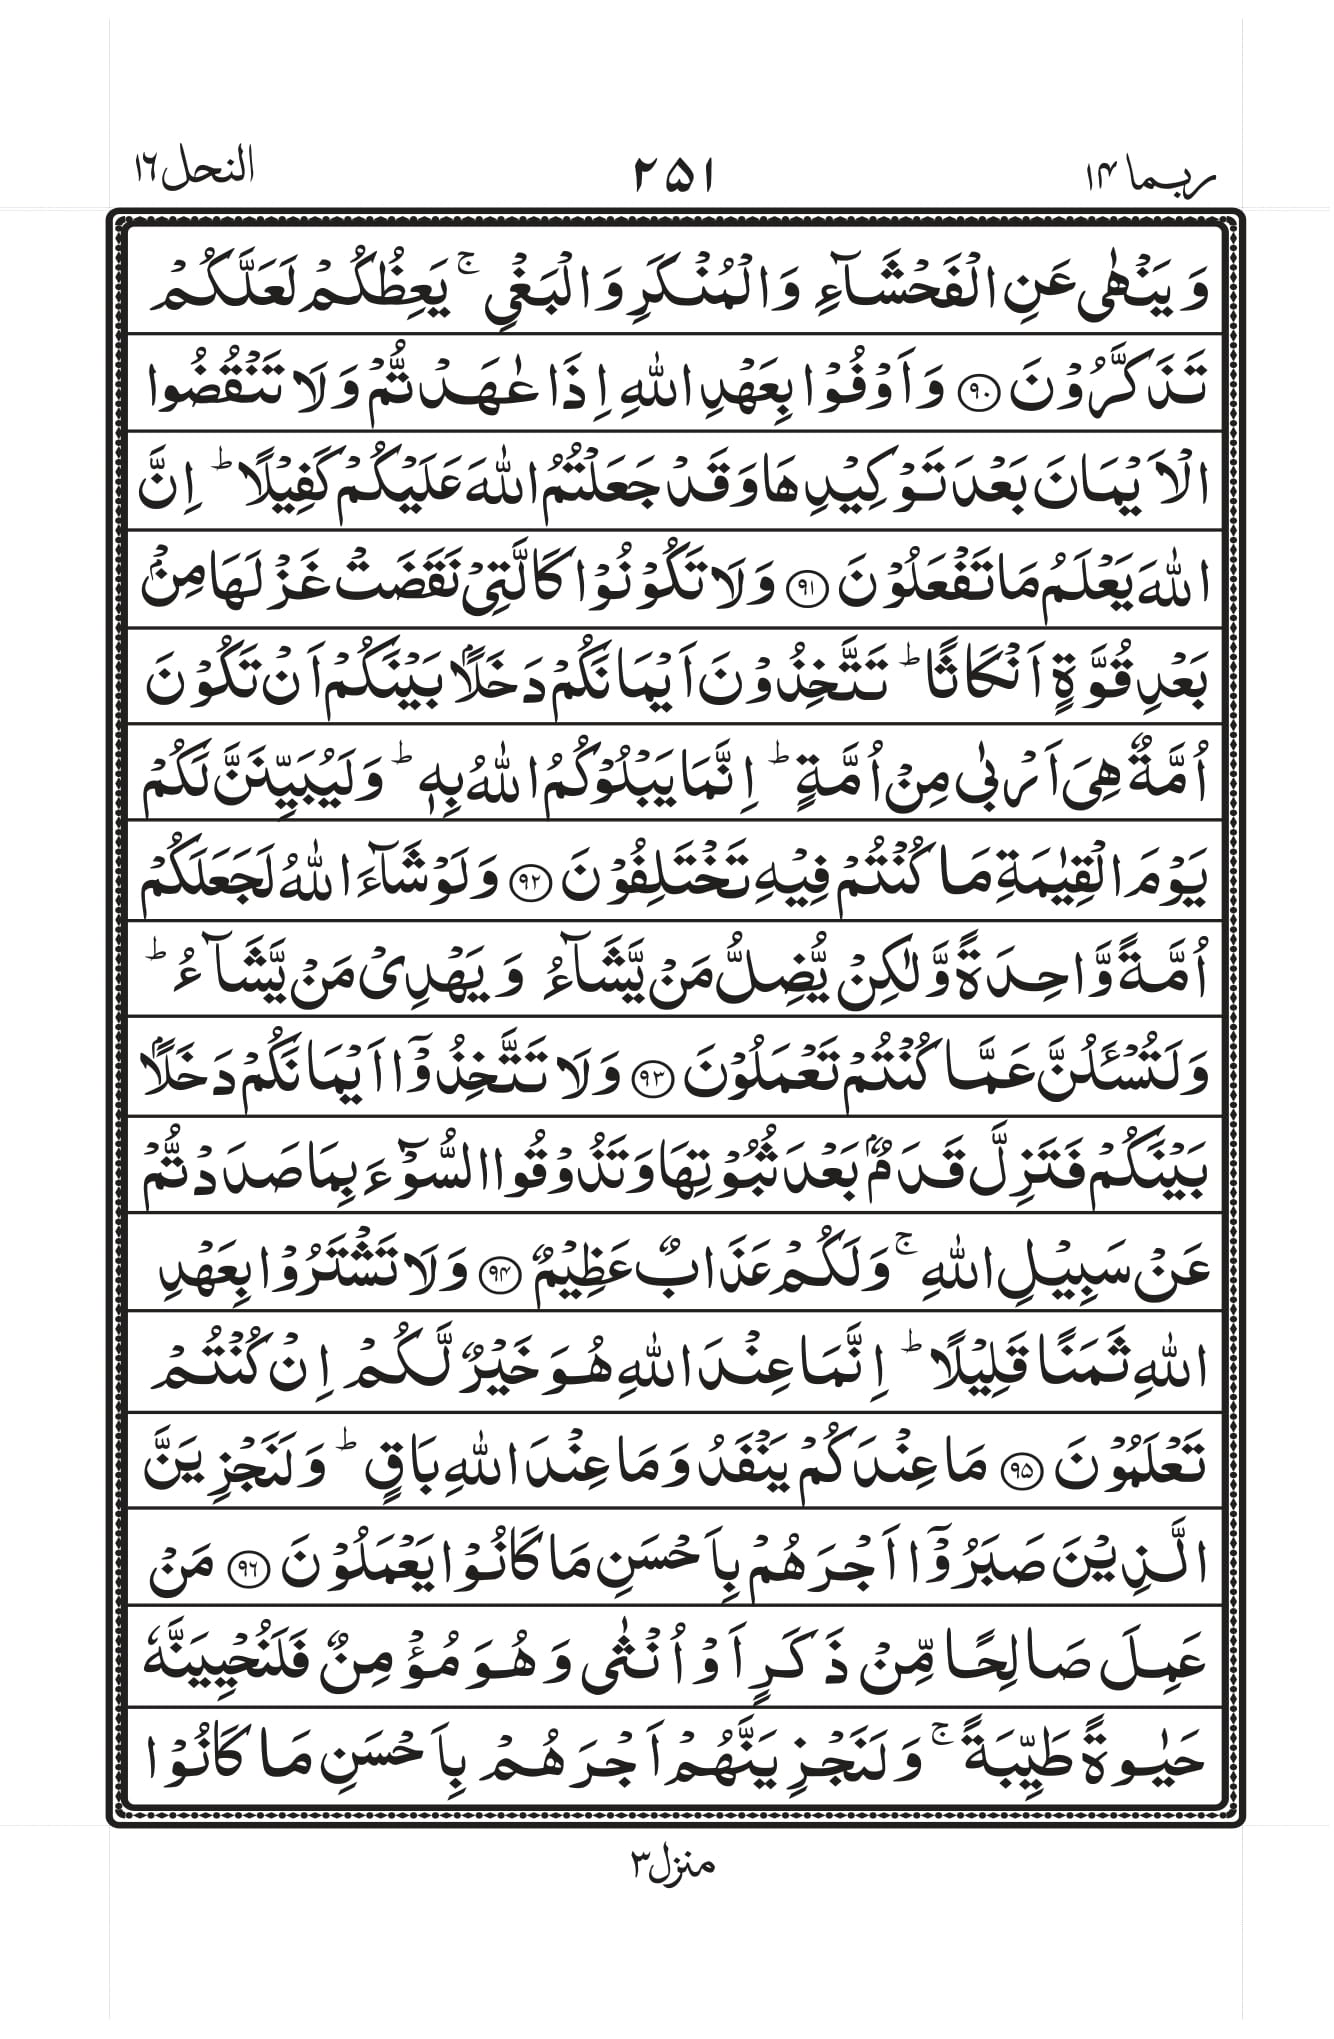 ربما ۱۴ ۲۵۱ النحل ۱۶
وَ يَنْهٰى عَنِ الْفَحْشَآءِ وَ الْمُنْكَرِ وَ الْبَغْيِ ۚ يَعِظُكُمْ لَعَلَّكُمْ
تَذَكَّرُوْنَ ﴿۹۰﴾ وَ اَوْفُوْا بِعَهْدِ اللّٰهِ اِذَا عٰهَدْتُّمْ وَ لَا تَنْقُضُوا
الْاَيْمَانَ بَعْدَ تَوْكِيْدِهَا وَ قَدْ جَعَلْتُمُ اللّٰهَ عَلَيْكُمْ كَفِيْلًا ؕ اِنَّ
اللّٰهَ يَعْلَمُ مَا تَفْعَلُوْنَ ﴿۹۱﴾ وَ لَا تَكُوْنُوْا كَالَّتِيْ نَقَضَتْ غَزْلَهَا مِنْۢ
بَعْدِ قُوَّةٍ اَنْكَاثًا ؕ تَتَّخِذُوْنَ اَيْمَانَكُمْ دَخَلًۢا بَيْنَكُمْ اَنْ تَكُوْنَ
اُمَّةٌ هِيَ اَرْبٰى مِنْ اُمَّةٍ ؕ اِنَّمَا يَبْلُوْكُمُ اللّٰهُ بِهٖ ؕ وَ لَيُبَيِّنَنَّ لَكُمْ
يَوْمَ الْقِيٰمَةِ مَا كُنْتُمْ فِيْهِ تَخْتَلِفُوْنَ ﴿۹۲﴾ وَ لَوْ شَآءَ اللّٰهُ لَجَعَلَكُمْ
اُمَّةً وَّاحِدَةً وَّ لٰكِنْ يُّضِلُّ مَنْ يَّشَآءُ وَ يَهْدِيْ مَنْ يَّشَآءُ ؕ
وَ لَتُسْـَٔلُنَّ عَمَّا كُنْتُمْ تَعْمَلُوْنَ ﴿۹۳﴾ وَ لَا تَتَّخِذُوْۤا اَيْمَانَكُمْ دَخَلًۢا
بَيْنَكُمْ فَتَزِلَّ قَدَمٌۢ بَعْدَ ثُبُوْتِهَا وَ تَذُوْقُوا السُّوْٓءَ بِمَا صَدَدْتُّمْ
عَنْ سَبِيْلِ اللّٰهِ ۚ وَ لَكُمْ عَذَابٌ عَظِيْمٌ ﴿۹۴﴾ وَ لَا تَشْتَرُوْا بِعَهْدِ
اللّٰهِ ثَمَنًا قَلِيْلًا ؕ اِنَّمَا عِنْدَ اللّٰهِ هُوَ خَيْرٌ لَّكُمْ اِنْ كُنْتُمْ
تَعْلَمُوْنَ ﴿۹۵﴾ مَا عِنْدَكُمْ يَنْفَدُ وَ مَا عِنْدَ اللّٰهِ بَاقٍ ؕ وَ لَنَجْزِيَنَّ
الَّذِيْنَ صَبَرُوْۤا اَجْرَهُمْ بِاَحْسَنِ مَا كَانُوْا يَعْمَلُوْنَ ﴿۹۶﴾ مَنْ
عَمِلَ صَالِحًا مِّنْ ذَكَرٍ اَوْ اُنْثٰى وَ هُوَ مُؤْمِنٌ فَلَنُحْيِيَنَّهٗ
حَيٰوةً طَيِّبَةً ۚ وَ لَنَجْزِيَنَّهُمْ اَجْرَهُمْ بِاَحْسَنِ مَا كَانُوْا
منزل ۳